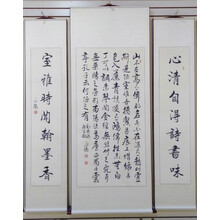 心清自得詩書味
山不在高有仙則名水在深有龍則靈
斯是陋室惟吾德馨苔痕上階綠草
色入簾青談笑有鴻儒往來無白
丁可以調素琴閱金經無絲竹之亂耳
無案牘之勞形南陽諸葛廬西蜀子雲
亭孔子云何陋之有
室雅時聞翰墨香